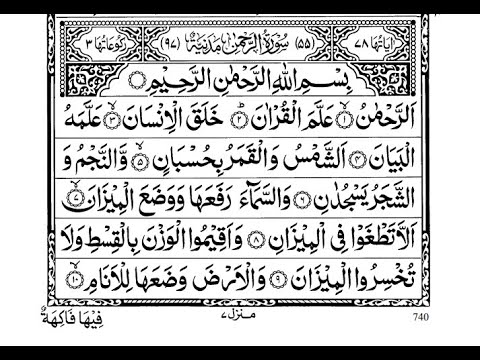 اٰیَاتُهَا ۷۸ (۵۵) سُوْرَةُ الرَّحْمٰنِ مَدَنِیَّةٌ (۹۷) رُکُوْعَاتُهَا ۳
بِسْمِ اللّٰهِ الرَّحْمٰنِ الرَّحِیْمِ
اَلرَّحْمٰنُ ۱ عَلَّمَ الْقُرْاٰنَ ۲ خَلَقَ الْاِنْسَانَ ۳ عَلَّمَهُ
الْبَیَانَ ۴ اَلشَّمْسُ وَالْقَمَرُ بِحُسْبَانٍ ۵ وَّالنَّجْمُ وَ
الشَّجَرُ یَسْجُدٰنِ ۶ وَالسَّمَآءَ رَفَعَهَا وَوَضَعَ الْمِیْزَانَ ۷
اَلَّا تَطْغَوْا فِی الْمِیْزَانِ ۸ وَاَقِیْمُوا الْوَزْنَ بِالْقِسْطِ وَلَا
تُخْسِرُوا الْمِیْزَانَ ۹ وَالْاَرْضَ وَضَعَهَا لِلْاَنَامِ ۱۰
فِیْهَا فَاکِهَةٌ منزل ۷ 740